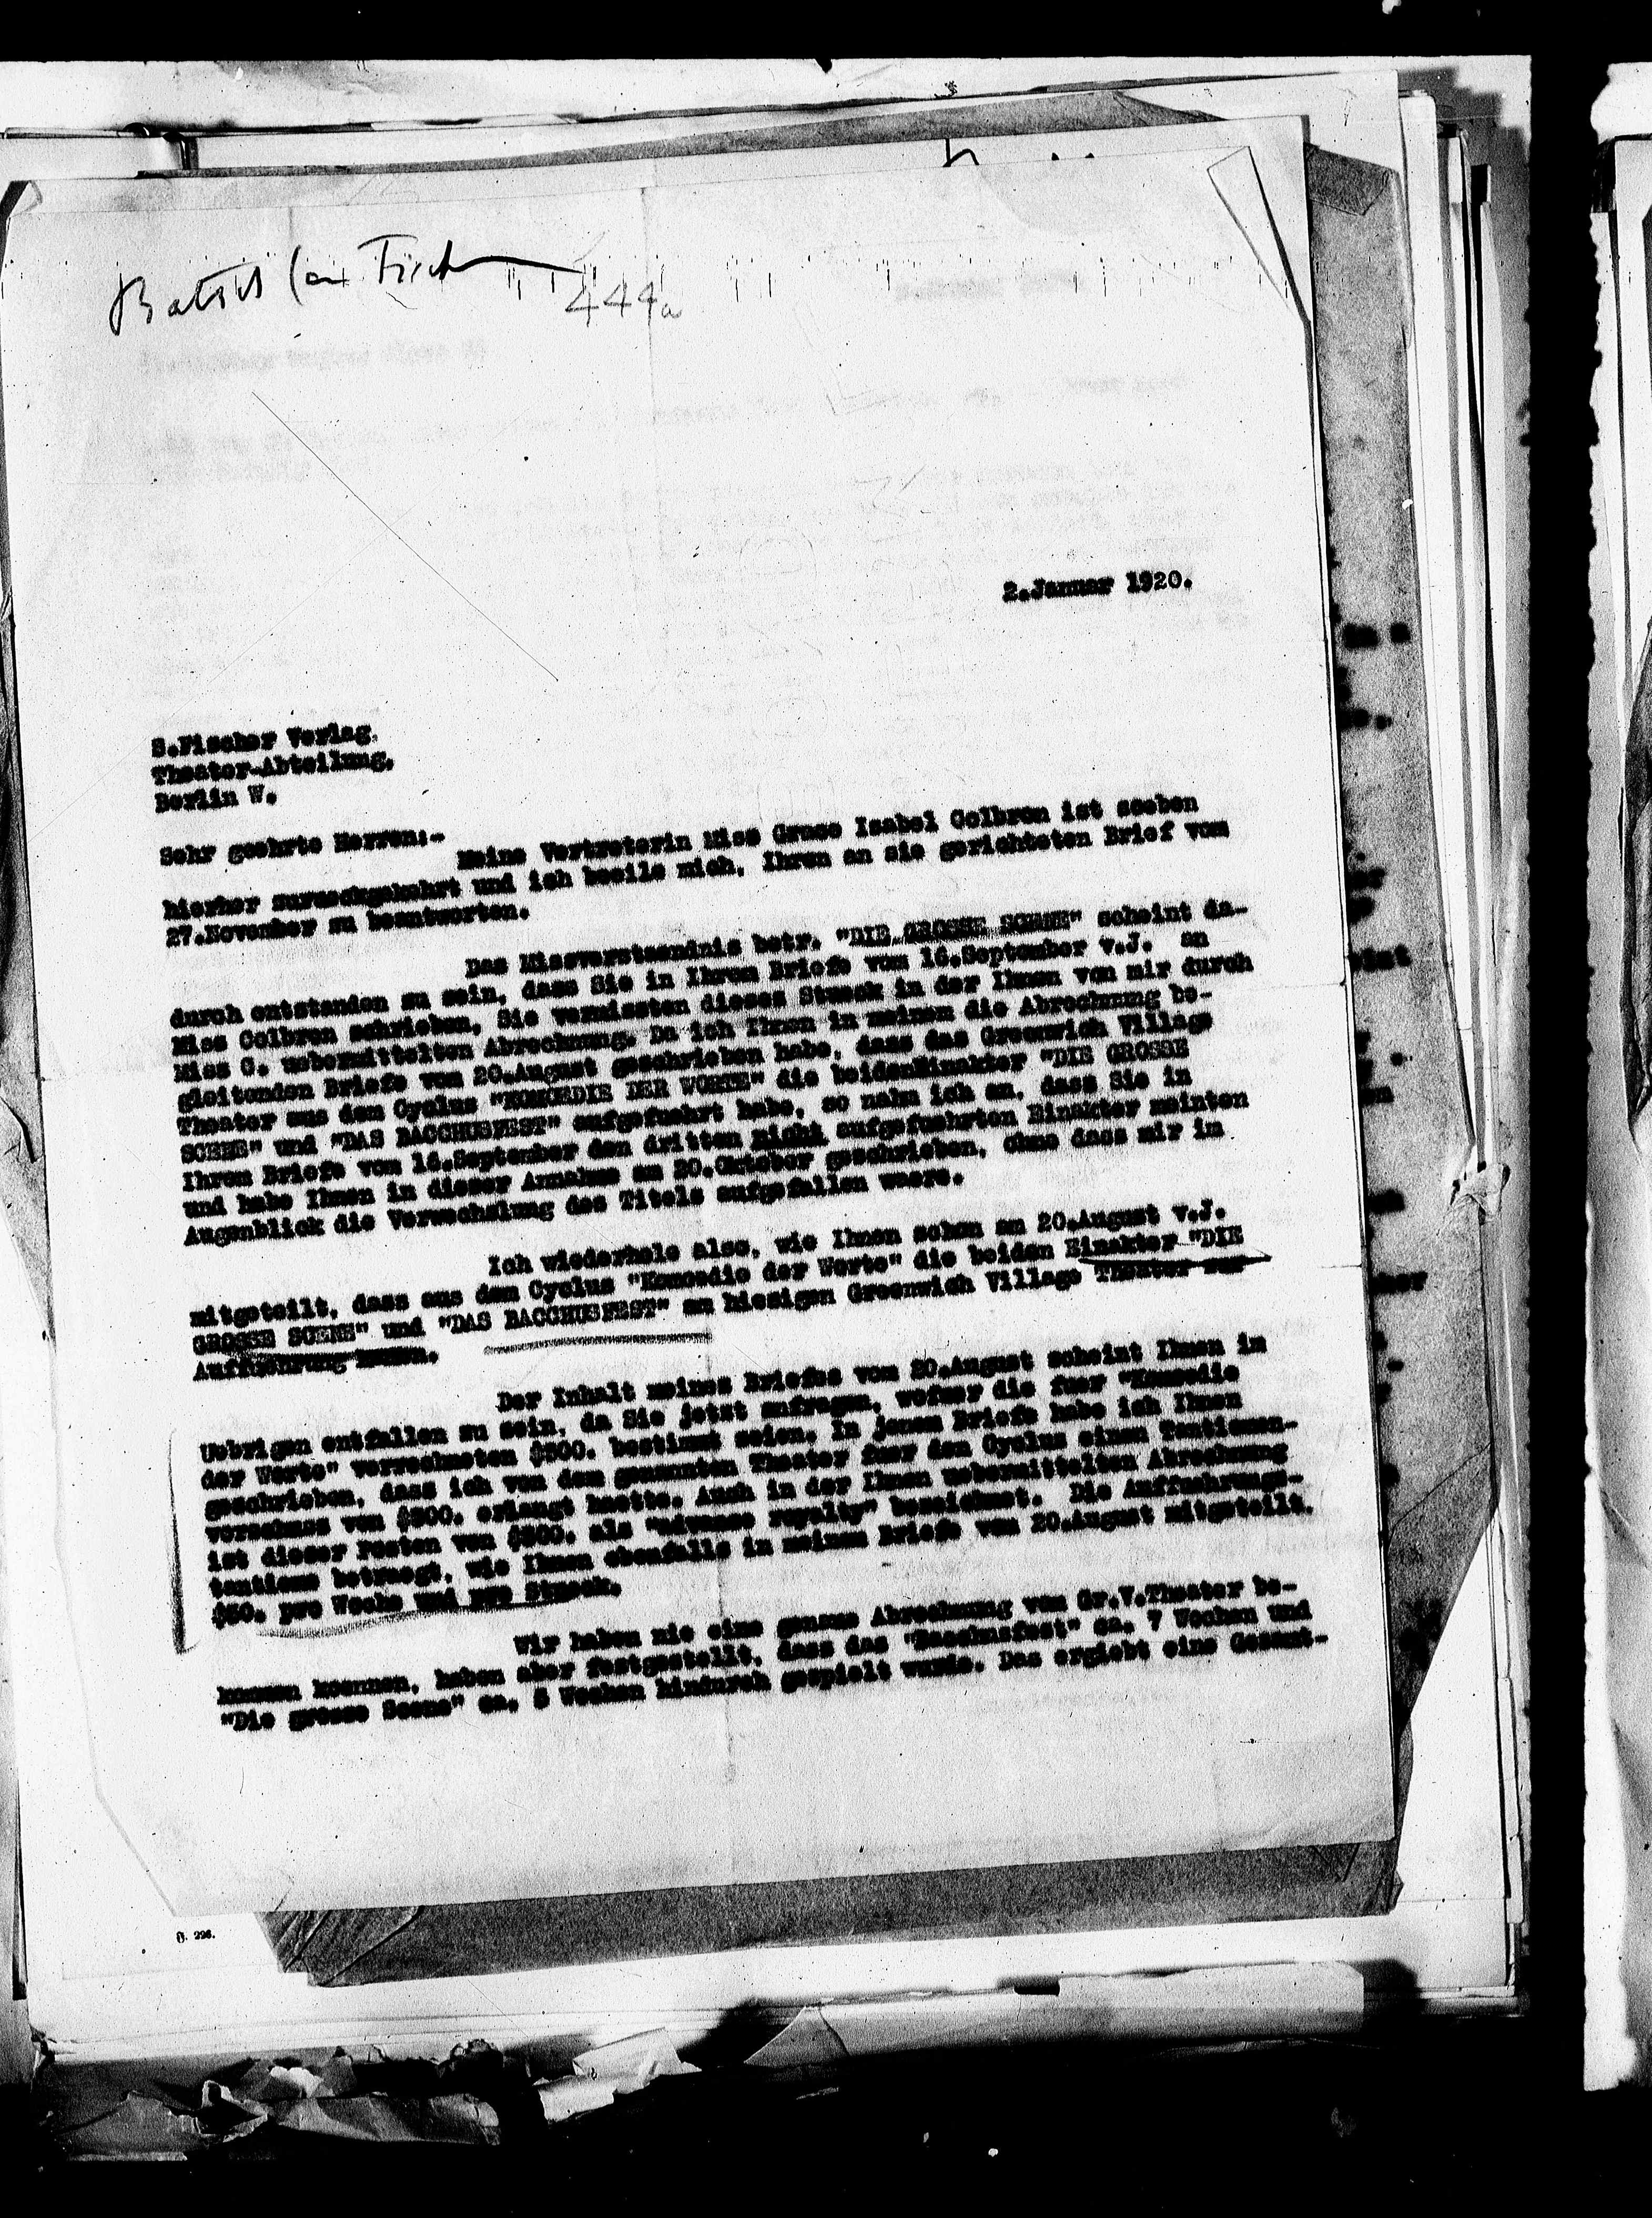 444a
2.Januar 1920.
S.Fischer Verlag,
Theater-Abteilung,
Berlin W.
Sehr geehrte Herren:-
Meine Vertreterin Miss Grace Isabel Colbron ist soeben
hierher zurueckgekehrt und ich beeile mich, Ihren an sie gerichteten Brief vom
27.November zu beantworten.
Das Missverstaendnis betr. "DIE GROSSE SCENE" scheint da-
durch entstanden zu sein, dass Sie in Ihrem Briefe vom 16.September v.J. an
Miss Colbron schrieben, Sie vermissten dieses Stueck in der Ihnen von mir durch
Miss C. uebermittelten Abrechnung. Da ich Ihnen in meinem die Abrechnung be-
gleitenden Briefe vom 20.August geschrieben habe, dass das Greenwich Village
Theater aus dem Cyclus "KOMOEDIE DER WORTE" die beidenEinakter "DIE GROSSE
SCENE" und "DAS BACCHUSFEST" aufgefuehrt habe, so nahm ich an, dass Sie in
Ihrem Briefe vom 16.September den dritten nicht aufgefuehrten Einakter meinten
und habe Ihnen in dieser Annahme am 20.Oktober geschrieben, ohne dass mir im
Augenblick die Verwechslung des Titels aufgefallen waere.
Ich wiederhole also, wie Ihnen schon am 20.August v.J.
mitgeteilt, dass aus dem Cyclus "Komoedie der Worte" die beiden Einakter "DIE
GROSSE SCENE" und "DAS BACCHUSFEST" am hiesigen Greenwich Village Theater zur
Auffuehrung kamen.
Der Inhalt meines Briefes vom 20.August scheint Ihnen im
Uebrigen entfallen zu sein, da Sie jetzt anfragen, wofuer die fuer "Komoedie
der Worte" verrechneten $500. bestimmt seien. In jenem Briefe habe ich Ihnen
geschrieben, dass ich von dem genannten Theater fuer den Cyclus einen Tantiemen-
vorschuss von $500. erlangt haette. Auch in der Ihnen uebermittelten Abrechnung
ist dieser Posten von $500. als "advance royalty" bezeichnet. Die Auffuehrungs-
tantieme betraegt, wie Ihnen ebenfalls in meinem Briefe vom 20.August mitgeteilt,
$50. pro Woche und pro Stueck.
Wir haben nie eine genaue Abrechnung vom Gr.V.Theater be-
kommen koennen, haben aber festgestellt, dass das "Bacchusfest" ca. 7 Wochen und
"Die grosse Scene" ca. 5 Wochen hindurch gespielt wurde. Das ergiebt eine Gesamt-